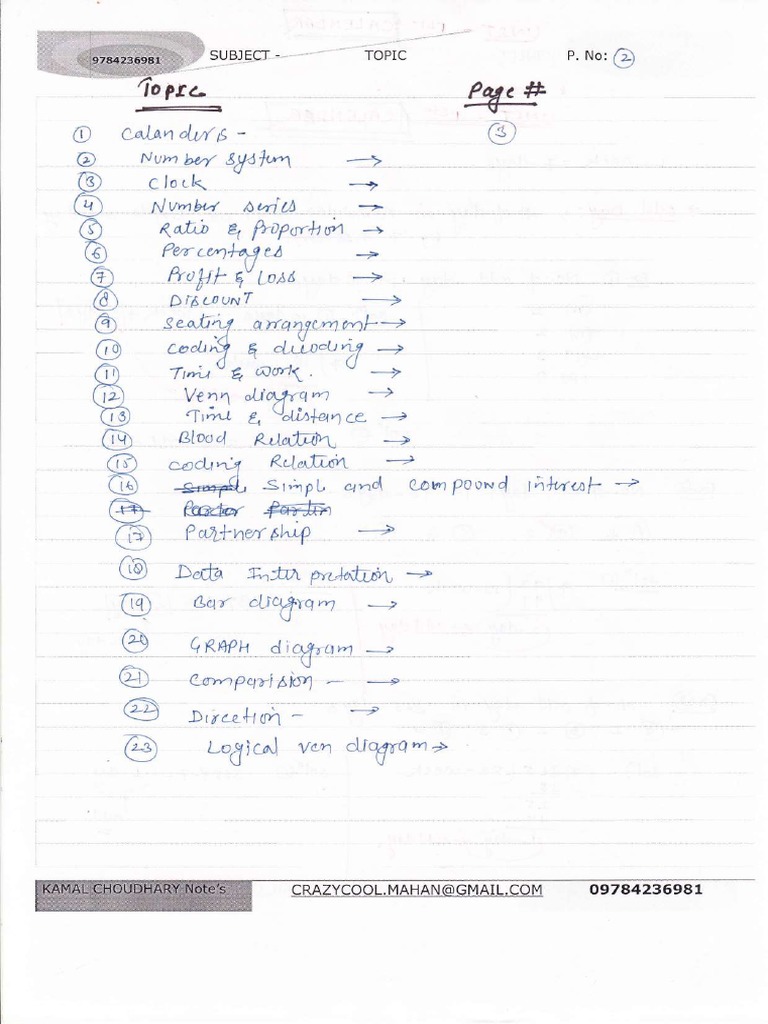 9784236981 SUBJECT - TOPIC P. No: 2
Topic Page #
1 Calanders - 3
2 Number system →
3 Clock →
4 Number series →
5 Ratio & Proportion →
6 Percentages →
7 Profit & Loss →
8 DISCOUNT →
9 Seating arrangement →
10 Coding & decoding →
11 Time & work. →
12 Venn diagram →
13 Time & distance →
14 Blood Relation →
15 Coding Relation →
16 Simple Simpl and compound interest →
17
17 Partnership →
18 Data Interpretation →
19 Bar diagram →
20 GRAPH diagram →
21 Comparision - →
22 Direction - →
23 Logical ven diagram →
KAMAL CHOUDHARY Note's CRAZYCOOL.MAHAN@GMAIL.COM 09784236981